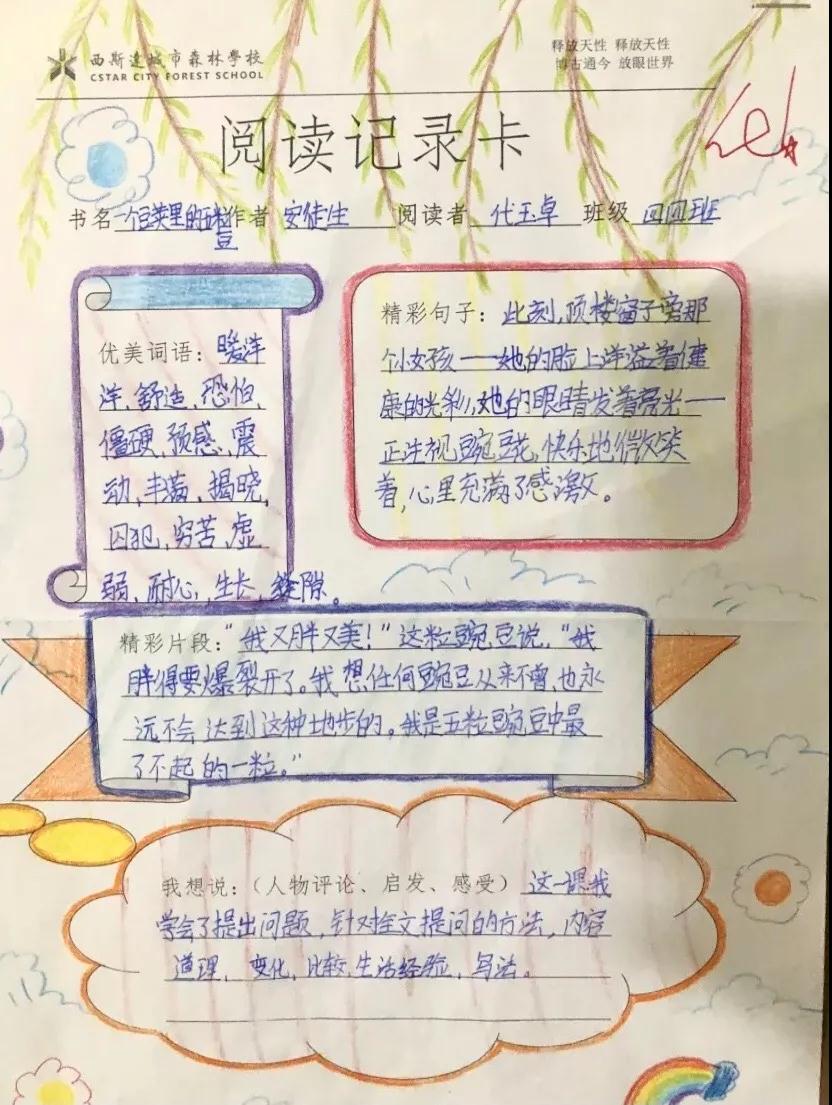 西斯达城市森林學校
CSTAR CITY FOREST SCHOOL
释放天性 释放天性
博古通今 放眼世界
阅读记录卡
书名一个豆荚里的五粒豆 作者 安徒生 阅读者 代玉卓 班级 四四班
优美词语：暖洋
洋,舒适,恐怕,
僵硬,预感,震
动,丰满,揭晓,
囚犯,穷苦,虚
弱,耐心,生长,缝隙。
精彩句子：此刻,顶楼窗子旁那
个小女孩——她的脸上洋溢着健
康的光彩,她的眼睛发着亮光——
正注视豌豆花,快乐地微笑
着,心里充满了感激。
精彩片段："我又胖又美!"这粒豌豆说,"我
胖得要爆裂开了。我想任何豌豆从来不曾,也永
远不会达到这种地步的。我是五粒豌豆中最
了不起的一粒。"
我想说：（人物评论、启发、感受）这一课我
学会了提出问题,针对全文提问的方法,内容
道理,变化,比较,生活经验,写法。